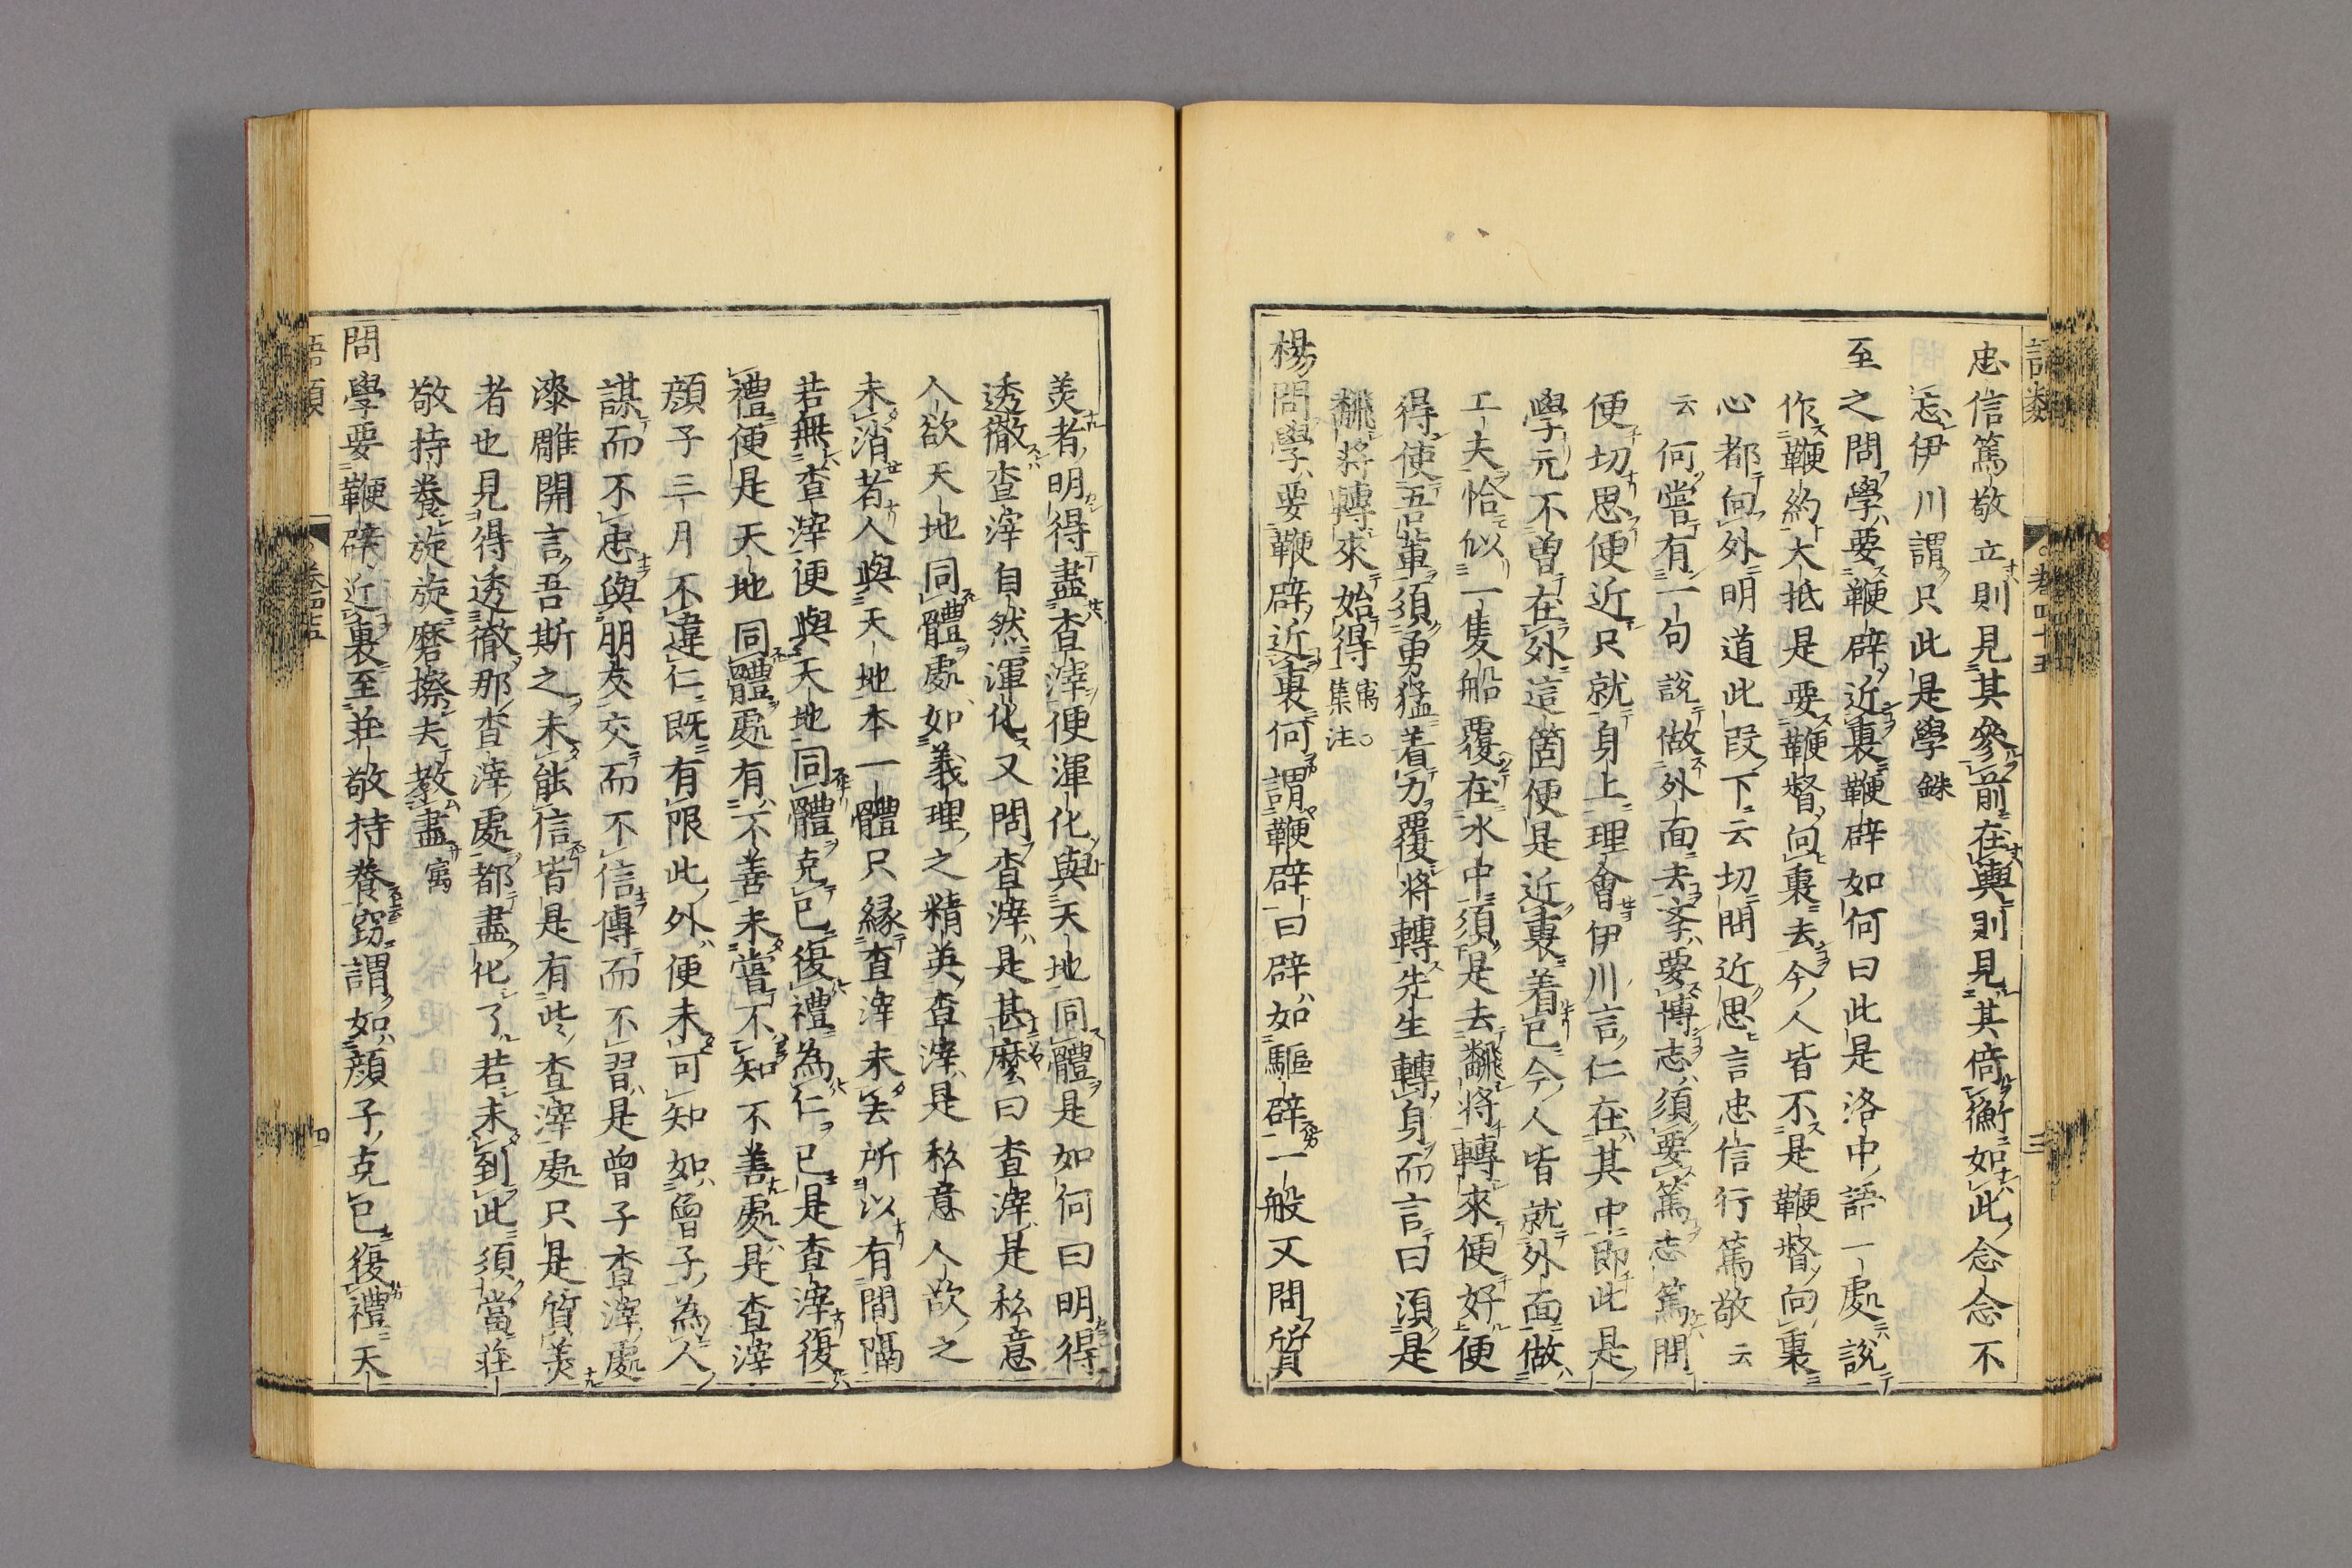 語類
卷四十五
三
忠信篤敬立則見其參前在輿則見其倚衡如此念念不
忘伊川謂只此是學銖
至之問學要鞭辟近裏鞭辟如何曰此是洛中語一處說
作鞭約大抵是要鞭督向裏去今人皆不是鞭督向裏
心都向外明道此段下云切問近思言忠信行篤敬云
云何嘗有一句說做外面去学要博志須要篤志篤問
便切思便近只就身上理會伊川言仁在其中即此是
學元不曽在外這箇便是近裏着已今人皆就外面做
工夫恰似一隻船覆在水中須是去飜將轉來便好便
得使吾軰須勇猛着力覆將轉先生轉身而言曰湏是
飜將轉來始得寓○集注
楊問學要鞭辟近裏何謂鞭辟曰辟如驅辟一般又問質
羙者明得盡查滓便渾化與天地同體是如何曰明得
透徹查滓自然渾化又問查滓是甚麽曰查滓是私意
人欲天地同體處如義理之精英查滓是私意人欲之
未消者人與天地本一體只縁查滓未去所以有間隔
若無查滓便與天地同體克已復禮為仁已是查滓復
禮便是天地同體處有不善未嘗不知不善處是查滓
顔子三月不違仁既有限此外便未可知如曾子為人
謀而不忠與朋友交而不信傳而不習是曾子查滓處
漆雕開言吾斯之未能信皆是有些查滓處只是質羙
者也見得透徹那查滓處都盡化了若未到此須當莊
敬持養旋旋磨擦去教盡寓
問學要鞭辟近裏至莊敬持養竊謂如顔子克已復禮天
語類
卷四十五
四